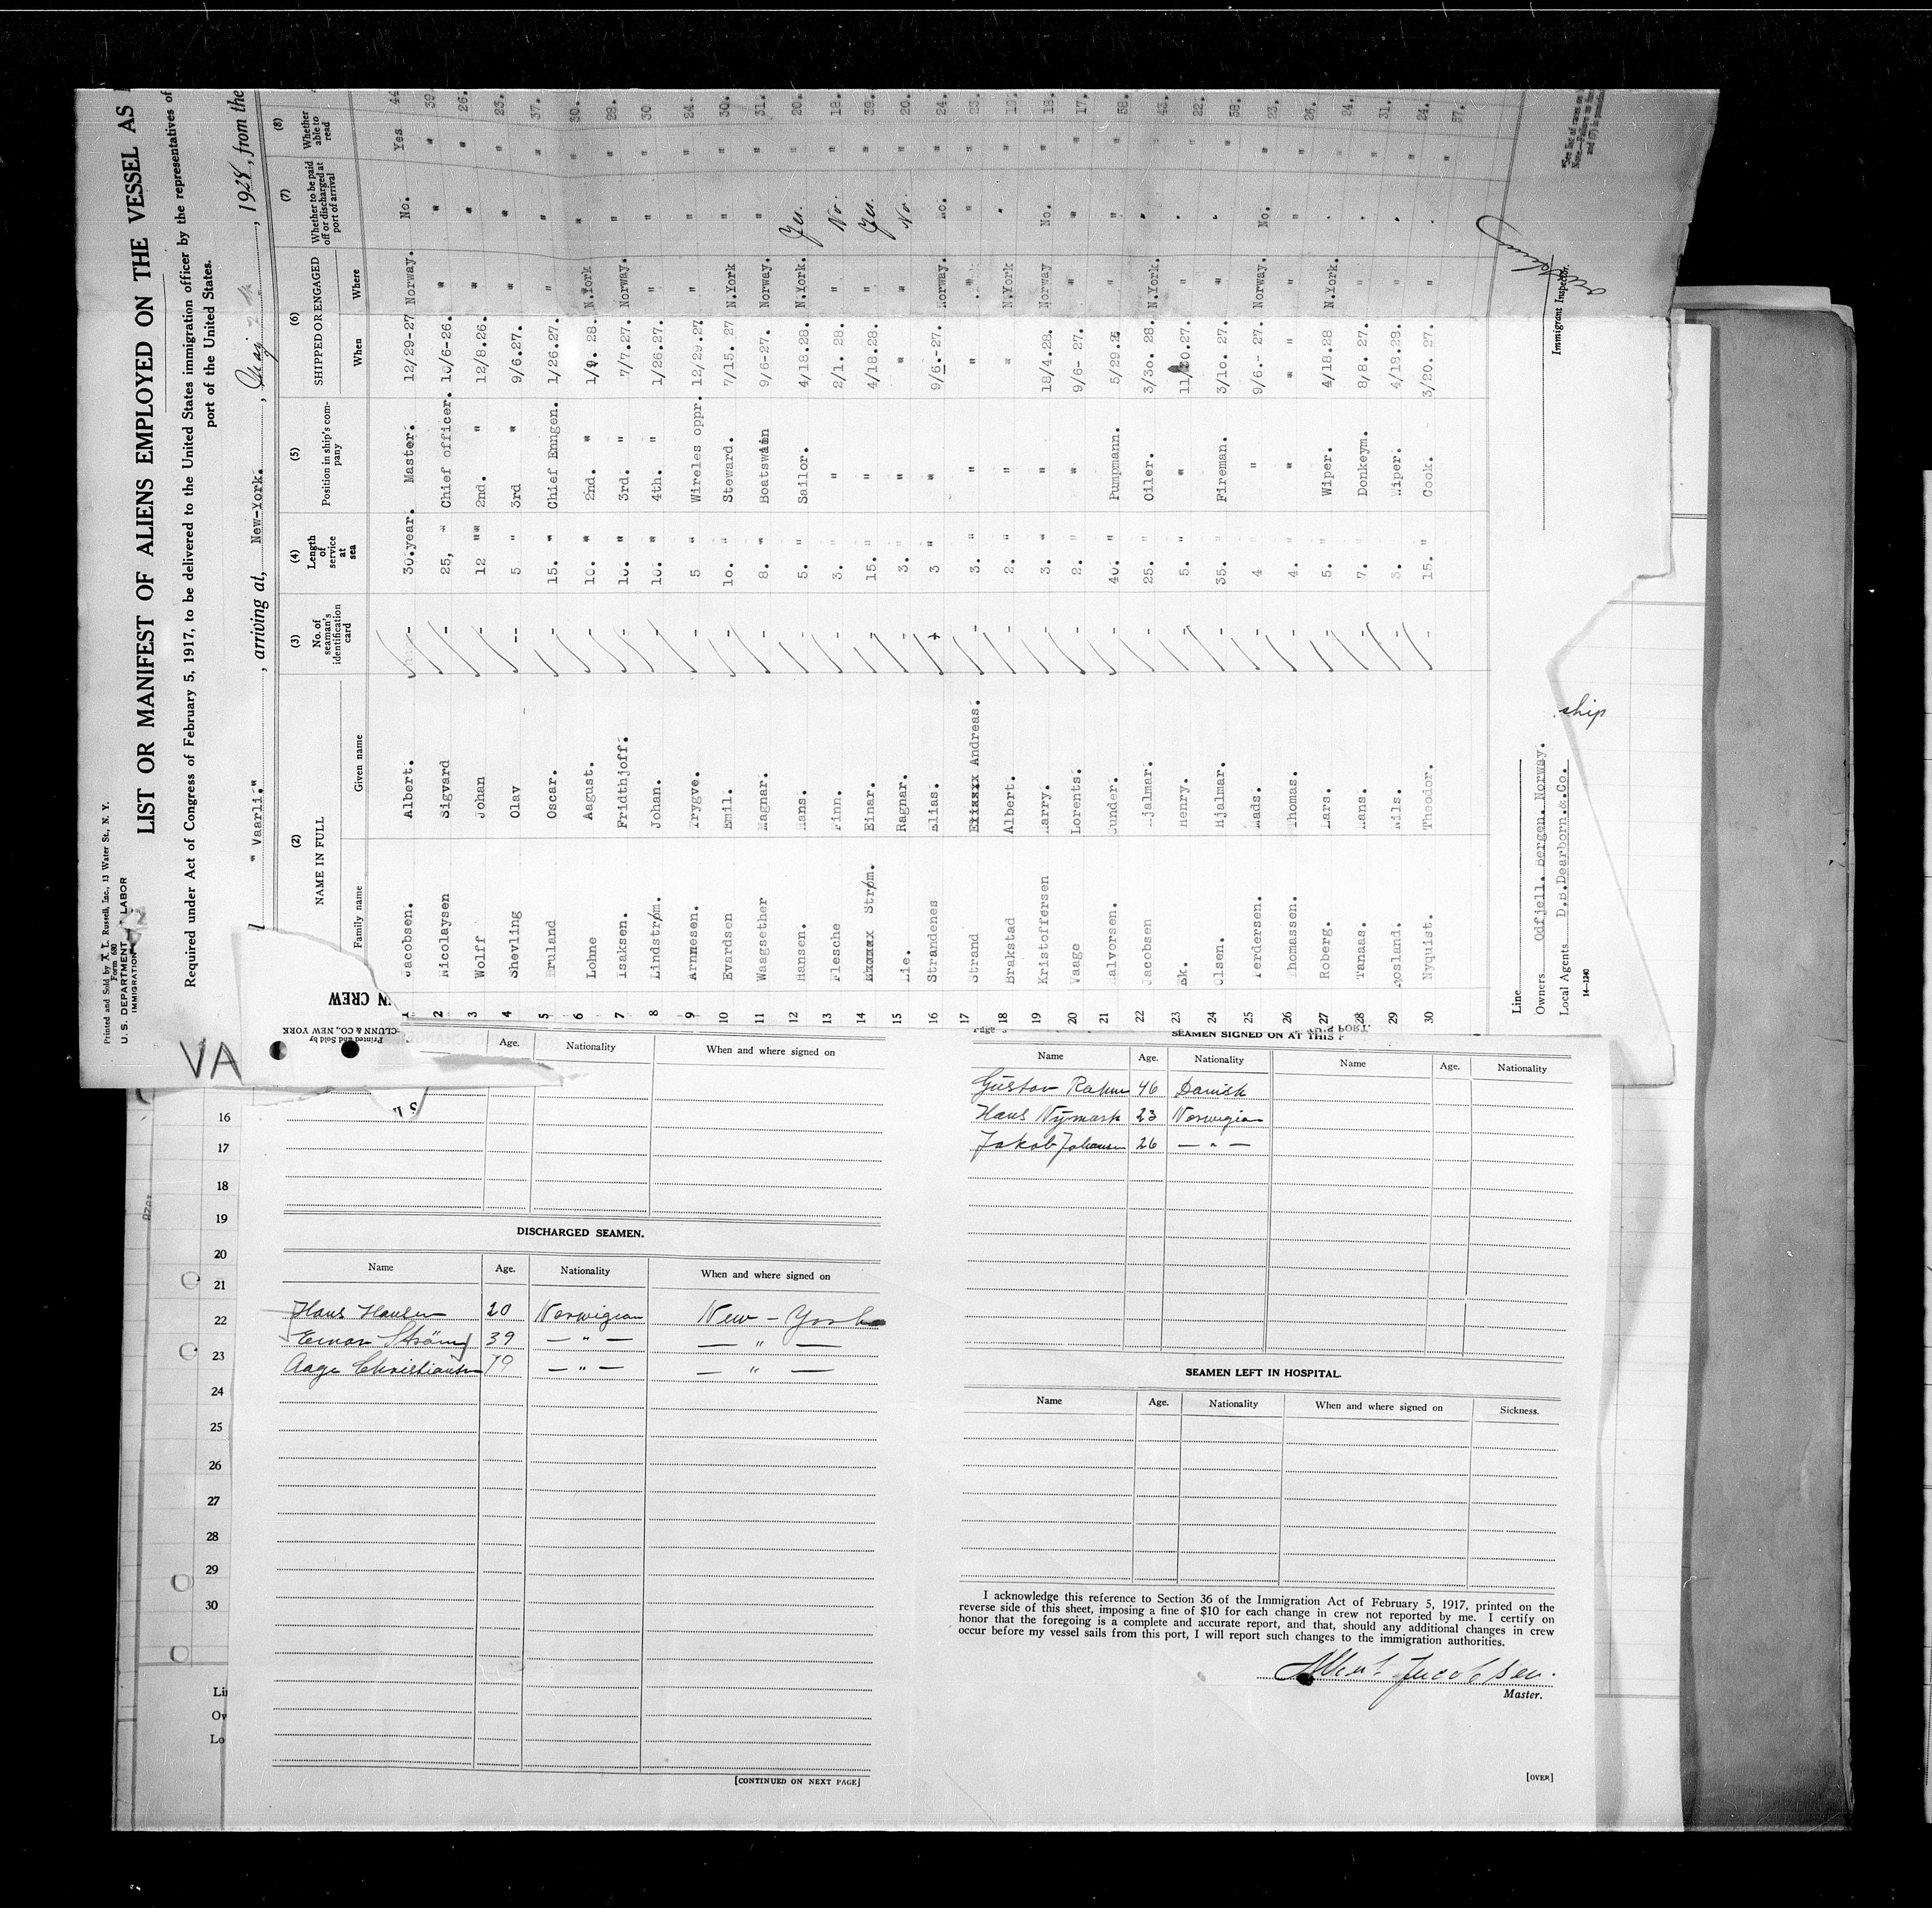 Printed and Sold by A. L. Russell, Inc., 13 Water St., N. Y.
Form 680
U. S. DEPARTMENT LABOR
IMMIGRATION
LIST OR MANIFEST OF ALIENS EMPLOYED ON THE VESSEL AS
Required under Act of Congress of February 5, 1917, to be delivered to the United States immigration officer by the representatives of
port of the United States.
"Vaarli.", arriving at, New-York., May, 1928, from the
(2) (3) (4) (5) (6) (7) (8)
NAME IN FULL No. of seaman's identification card Length of service at sea Position in ship's company SHIPPED OR ENGAGED Whether to be paid off or discharged at port of arrival Whether able to read
Family name Given name When Where
1 Jacobsen. Albert. - 30.year. Master. 12/29-27 Norway. No. Yes 44
2 Nicolaysen Sigvard - 25, " Chief officer. 10/6-26. " " " 39.
3 Wolff Johan - 12 "" 2nd. " 12/8.26. " " " 26.
4 Shevling Olav -- 5 " 3rd " 9/6.27. " " " 23.
5 Bruland Oscar. - 15. " Chief Enngen. 1/26.27. " " " 37.
6 Lohne August. - 10. " 2nd. " 1/9. 28. N.York " " 30.
7 Isaksen. Fridthjoff. - 10. " 3rd. " 7/7.27. Norway. " " 28.
8 Lindstrøm. Johan. - 10. " 4th. " 1/26.27. " " " 30.
9 Arnmesen. Trygve. - 5 " Wireles oppr. 12/29.27 " " " 24.
10 Evardsen Emil. - 10. " Steward. 7/15. 27 N.York " " 30.
11 Waagsether Magnar. - 8. " Boatswain 9/6-27. Norway. " " 31.
12 Hansen. Hans. - 5. " Sailor. 4/18.28. N.York. Yes. " 20.
13 Flesche Finn. - 3. " " 2/1. 28. " No. " 18.
14 Strøm. Einar. - 15. " " 4/18.28. " Yes. " 39.
15 Lie. Ragnar. - 3. " " " " No. " 20.
16 Strandenes Elias. 3 " " 9/6.-27. Norway. No. " 24.
17 Strand Andreas. - 3. " " " " " " 23.
18 Brakstad Albert. - 2. " " " N.York " " 19.
19 Kristoffersen Harry. - 3. " " 18/4.28. Norway No. " 18.
20 Vaage Lorents. - 2. " " 9/6- 27. " " " 17.
21 Halvorsen. Gunder. - 40. " Pumpmann. 5/29.26 " " " 58.
22 Jacobsen Hjalmar. - 25. " Oiler. 3/30. 28. N.York. " " 43.
23 Ek. Henry. - 5. " " 11/30.27. " " " 22.
24 Olsen. Hjalmar. - 35. " Fireman. 3/10. 27. " " " 58.
25 Perdersen. Mads. - 4 " " 9/6.- 27. Norway. No. " 23.
26 Thomassen. Thomas. - 4. " " " " " " 26.
27 Roberg. Lars. - 5. " Wiper. 4/18.28 N.York. " " 24.
28 Tanaas. Hans. - 7. " Donkeym. 8/8. 27. " " " 31.
29 Mosland. Nils. - 3. " Wiper. 4/18.28. " " " 24.
30 Nyquist. Theodor. - 15. " Cook. 3/20. 27. " " " 57.
Line
Owners Odfjell. Bergen. Norway.
Local Agents D.B.Dearborn.&.Co.
14-1240
Immigrant Inspector.
ship
N CREW
Printed and Sold by
CLUNN & CO., NEW YORK
VA
Age. Nationality When and where signed on
16
17
18
19
20
21
22
23
24
25
26
27
28
29
30
DISCHARGED SEAMEN.
Name Age. Nationality When and where signed on
Hans Hansen 20 Norwigian New-York
Einar Ström 39 — " — — " —
Aage Christiansen 19 — " — — " —
[CONTINUED ON NEXT PAGE]
SEAMEN SIGNED ON AT THIS P
Name Age. Nationality Name Age. Nationality
Gustav Rahm 46 Danish
Hans Nymark 23 Norwegian
Jakob Johansen 26 — " —
SEAMEN LEFT IN HOSPITAL.
Name Age. Nationality When and where signed on Sickness.
I acknowledge this reference to Section 36 of the Immigration Act of February 5, 1917, printed on the
reverse side of this sheet, imposing a fine of $10 for each change in crew not reported by me. I certify on
honor that the foregoing is a complete and accurate report, and that, should any additional changes in crew
occur before my vessel sails from this port, I will report such changes to the immigration authorities.
Albert Jacobsen.
Master.
[OVER]